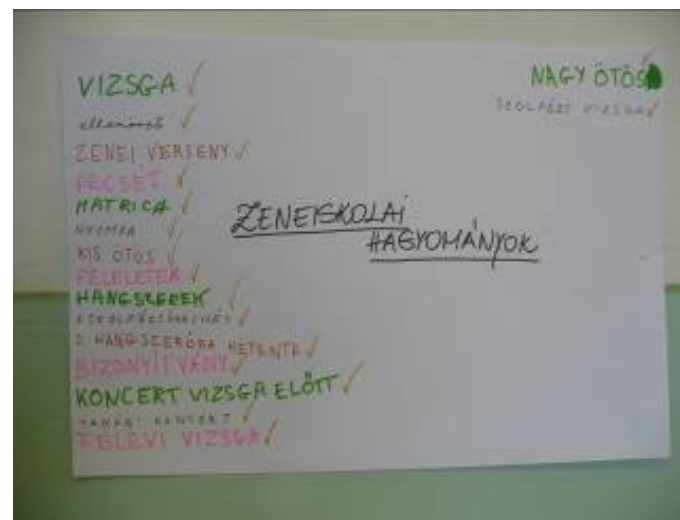 VIZSGA
ellenőrző
ZENEI VERSENY
PECSÉT
MATRICA
NYOMDA
KIS ÖTÖS
FELELETEK
HANGSZEREK
2 HANGSZERÓRA HETENTE
BIZONYÍTVÁNY
KONCERT VIZSGA ELŐTT
TANÁRI KONCERT
FÉLÉVI VIZSGA
ZENEISKOLAI
HAGYOMÁNYOK
NAGY ÖTÖS
SZOLFÉZS VIZSGA